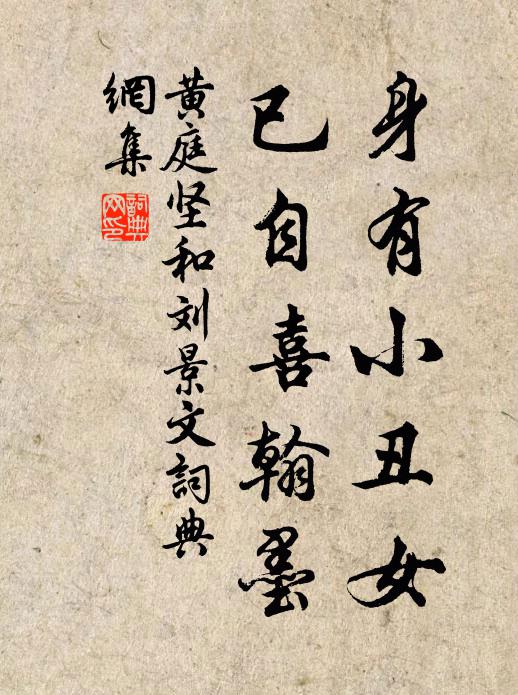 身有小丑女
已自喜翰墨
黄庭坚和刘景文詞典
網集
詞典
网印